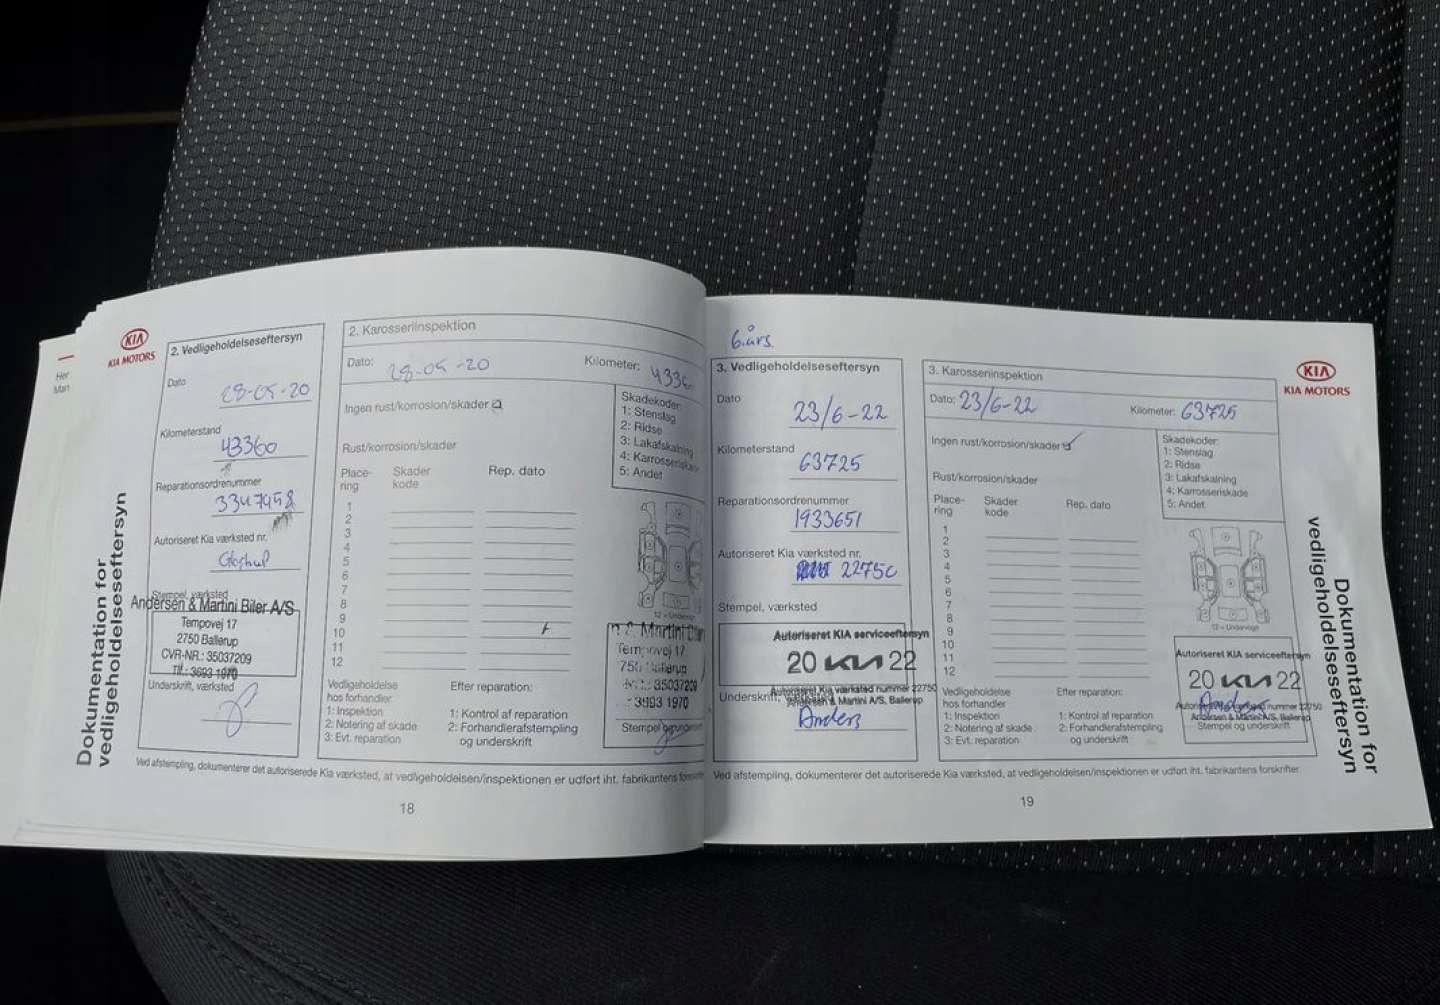 Her
Man
KIA
KIA MOTORS
Dokumentation for
vedligeholdelseseftersyn
2. Vedligeholdelseseftersyn
Dato
28-05-20
Kilometerstand
43360
Reparationsordrenummer
3347458
Autoriseret Kia værksted nr.
Glostrup
Stempel, værksted
Andersen & Martini Biler A/S
Tempovej 17
2750 Ballerup
CVR-NR.: 35037209
Tlf.: 3693 1970
Underskrift, værksted
2. Karosseriinspektion
Dato: 28-05-20
Kilometer: 43360
Ingen rust/korrosion/skader
Rust/korrosion/skader
Place-
ring
Skader
kode
Rep. dato
1
2
3
4
5
6
7
8
9
10
11
12
Skadekoder:
1: Stenslag
2: Ridse
3: Lakafskalning
4: Karrosseriskade
5: Andet
12 = Undervogn
n & Martini Biler
Tempovej 17
750 Ballerup
: 35037209
: 3693 1970
Stempel og underskrift
Vedligeholdelse
hos forhandler
1: Inspektion
2: Notering af skade
3: Evt. reparation
Efter reparation:
1: Kontrol af reparation
2: Forhandlerafstempling
og underskrift
Ved afstempling, dokumenterer det autoriserede Kia værksted, at vedligeholdelsen/inspektionen er udført iht. fabrikantens
18
6.års
3. Vedligeholdelseseftersyn
Dato
23/6-22
Kilometerstand
63725
Reparationsordrenummer
1933651
Autoriseret Kia værksted nr.
22750
Stempel, værksted
Autoriseret KIA serviceeftersyn
20 KIA 22
Autoriseret Kia værksted nummer 22750
Andersen & Martini A/S, Ballerup
Underskrift, værksted
Anders
3. Karosseriinspektion
Dato: 23/6-22
Kilometer: 63725
Ingen rust/korrosion/skader
Rust/korrosion/skader
Place-
ring
Skader
kode
Rep. dato
1
2
3
4
5
6
7
8
9
10
11
12
Skadekoder:
1: Stenslag
2: Ridse
3: Lakafskalning
4: Karrosseriskade
5: Andet
12 = Undervogn
Autoriseret KIA serviceeftersyn
20 KIA 22
Anders
Autoriseret Kia værksted nummer 22750
Andersen & Martini A/S, Ballerup
Stempel og underskrift
Vedligeholdelse
hos forhandler
1: Inspektion
2: Notering af skade
3: Evt. reparation
Efter reparation:
1: Kontrol af reparation
2: Forhandlerafstempling
og underskrift
Ved afstempling, dokumenterer det autoriserede Kia værksted, at vedligeholdelsen/inspektionen er udført iht. fabrikantens forskrifter.
19
KIA
KIA MOTORS
Dokumentation for
vedligeholdelseseftersyn